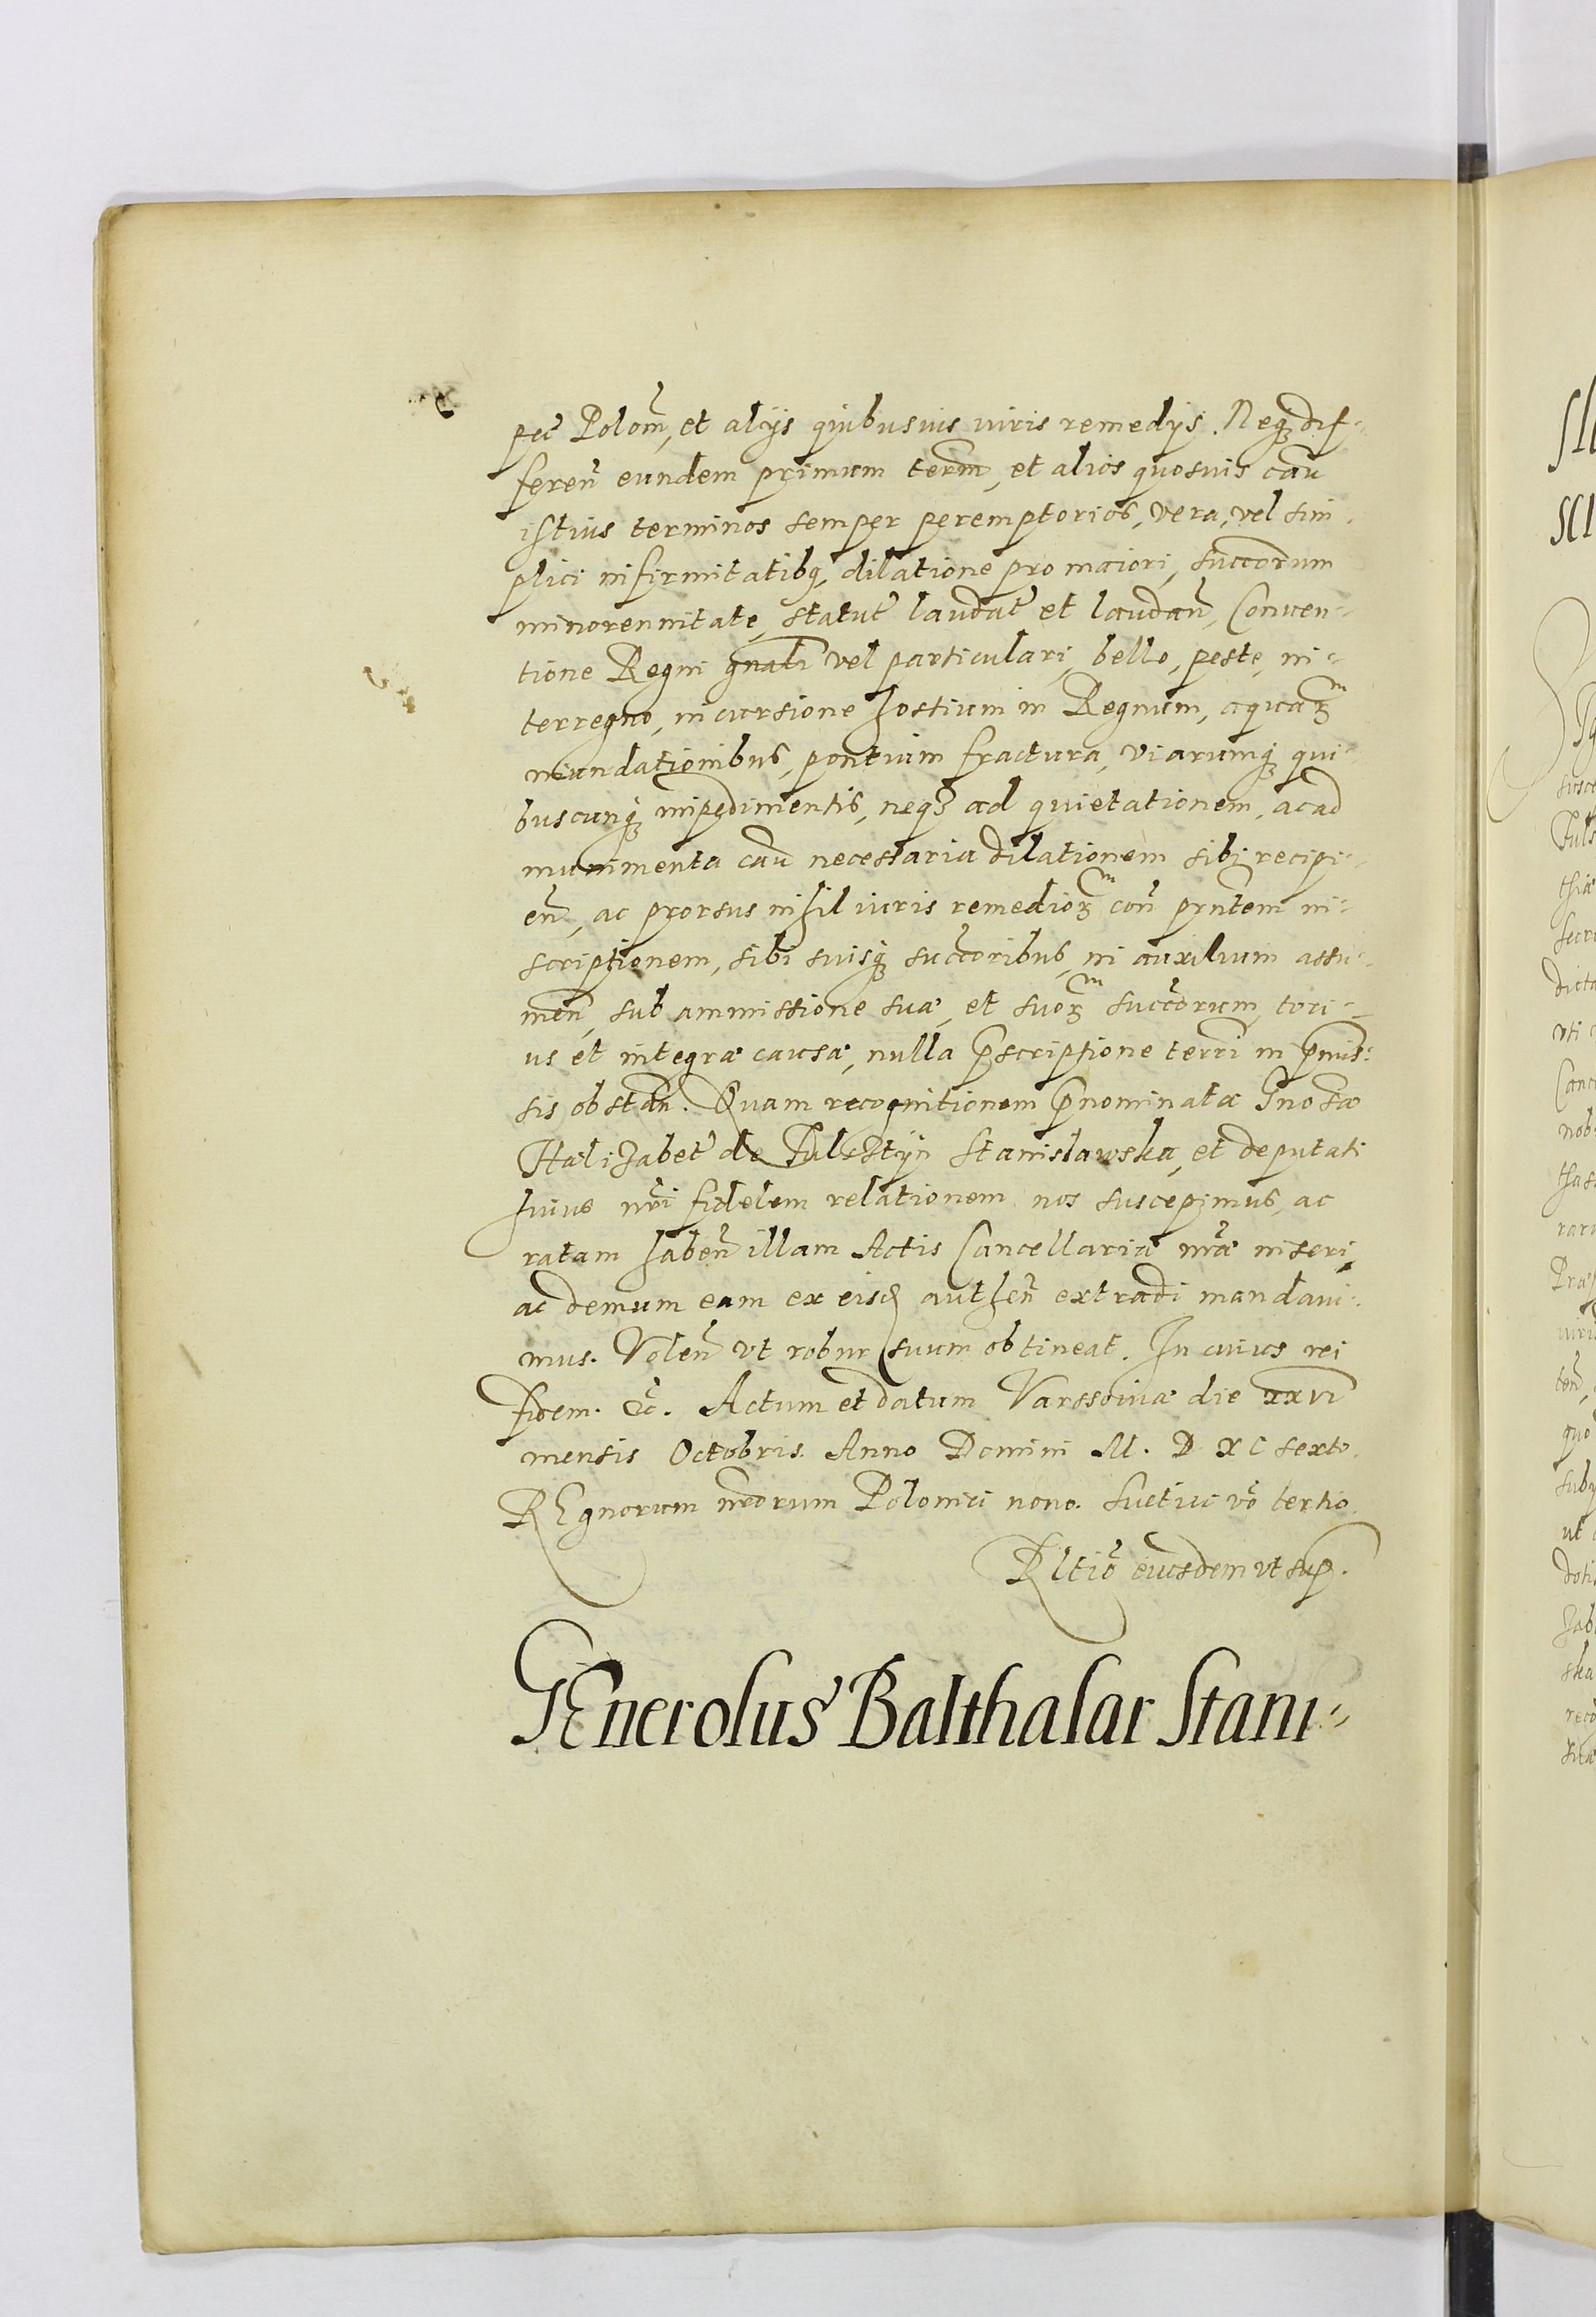 pec̃ Polom̃, et alijs quibusuis iuris remedijs. Neqȝ dif=
feren̄ eundem primum term̃, et alios quosuis cau̅
istius terminos semper peremptorios, vera, vel sim=
plici infirmitatibȝ, dilatione pro maiori, succorum
minorennitate, statut̃ laudat̃ et laudan̄, Conuen=
tione Regni gnali vel particulari, bello, peste, in=
terregno, incursione hostium in Regnum, aquaꝝ
inundationibus, pontium fractura, viarumqȝ qui=
buscunqȝ impedimentis, neqȝ ad quietationem, ac ad
munimenta cau̅ necessaria dilationem sibi recipi=
en̄, ac prorsus nihil iuris remedioꝝ con̄ prntem in=
scriptionem, sibi suisqȝ succoribus, in auxilium assu=
men̄, sub ammissione suæ, et suoꝝ succorum, toti=
us et integræ causæ, nulla p̄scriptione terr̄i in p̄mis=
sis obstan̄. Quam recognitionem p̄nominatæ Gnosæ
Halizabet̃ de Fulsztijn Stanisławska, et deputati
huius nr̄i fidelem relationem nos suscepimus, ac
ratam haben̄ illam Actis Cancellariæ nr̄æ inseri,
ac demum eam ex eisd̄ authen̄ extradi mandaui=
mus. Volen̄ vt robur suum obtineat. In cuius rei
fidem. &c̃. Actum et datum Varssouiæ die xxvi
mensis Octobris. Anno Domini M. D xc sexto.
REgnorum nr̄orum Poloniæ nono. Suetiæ vō tertio.
Rltiō eiusdem vt sup̄.
GEnerosus Balthasar Stani=